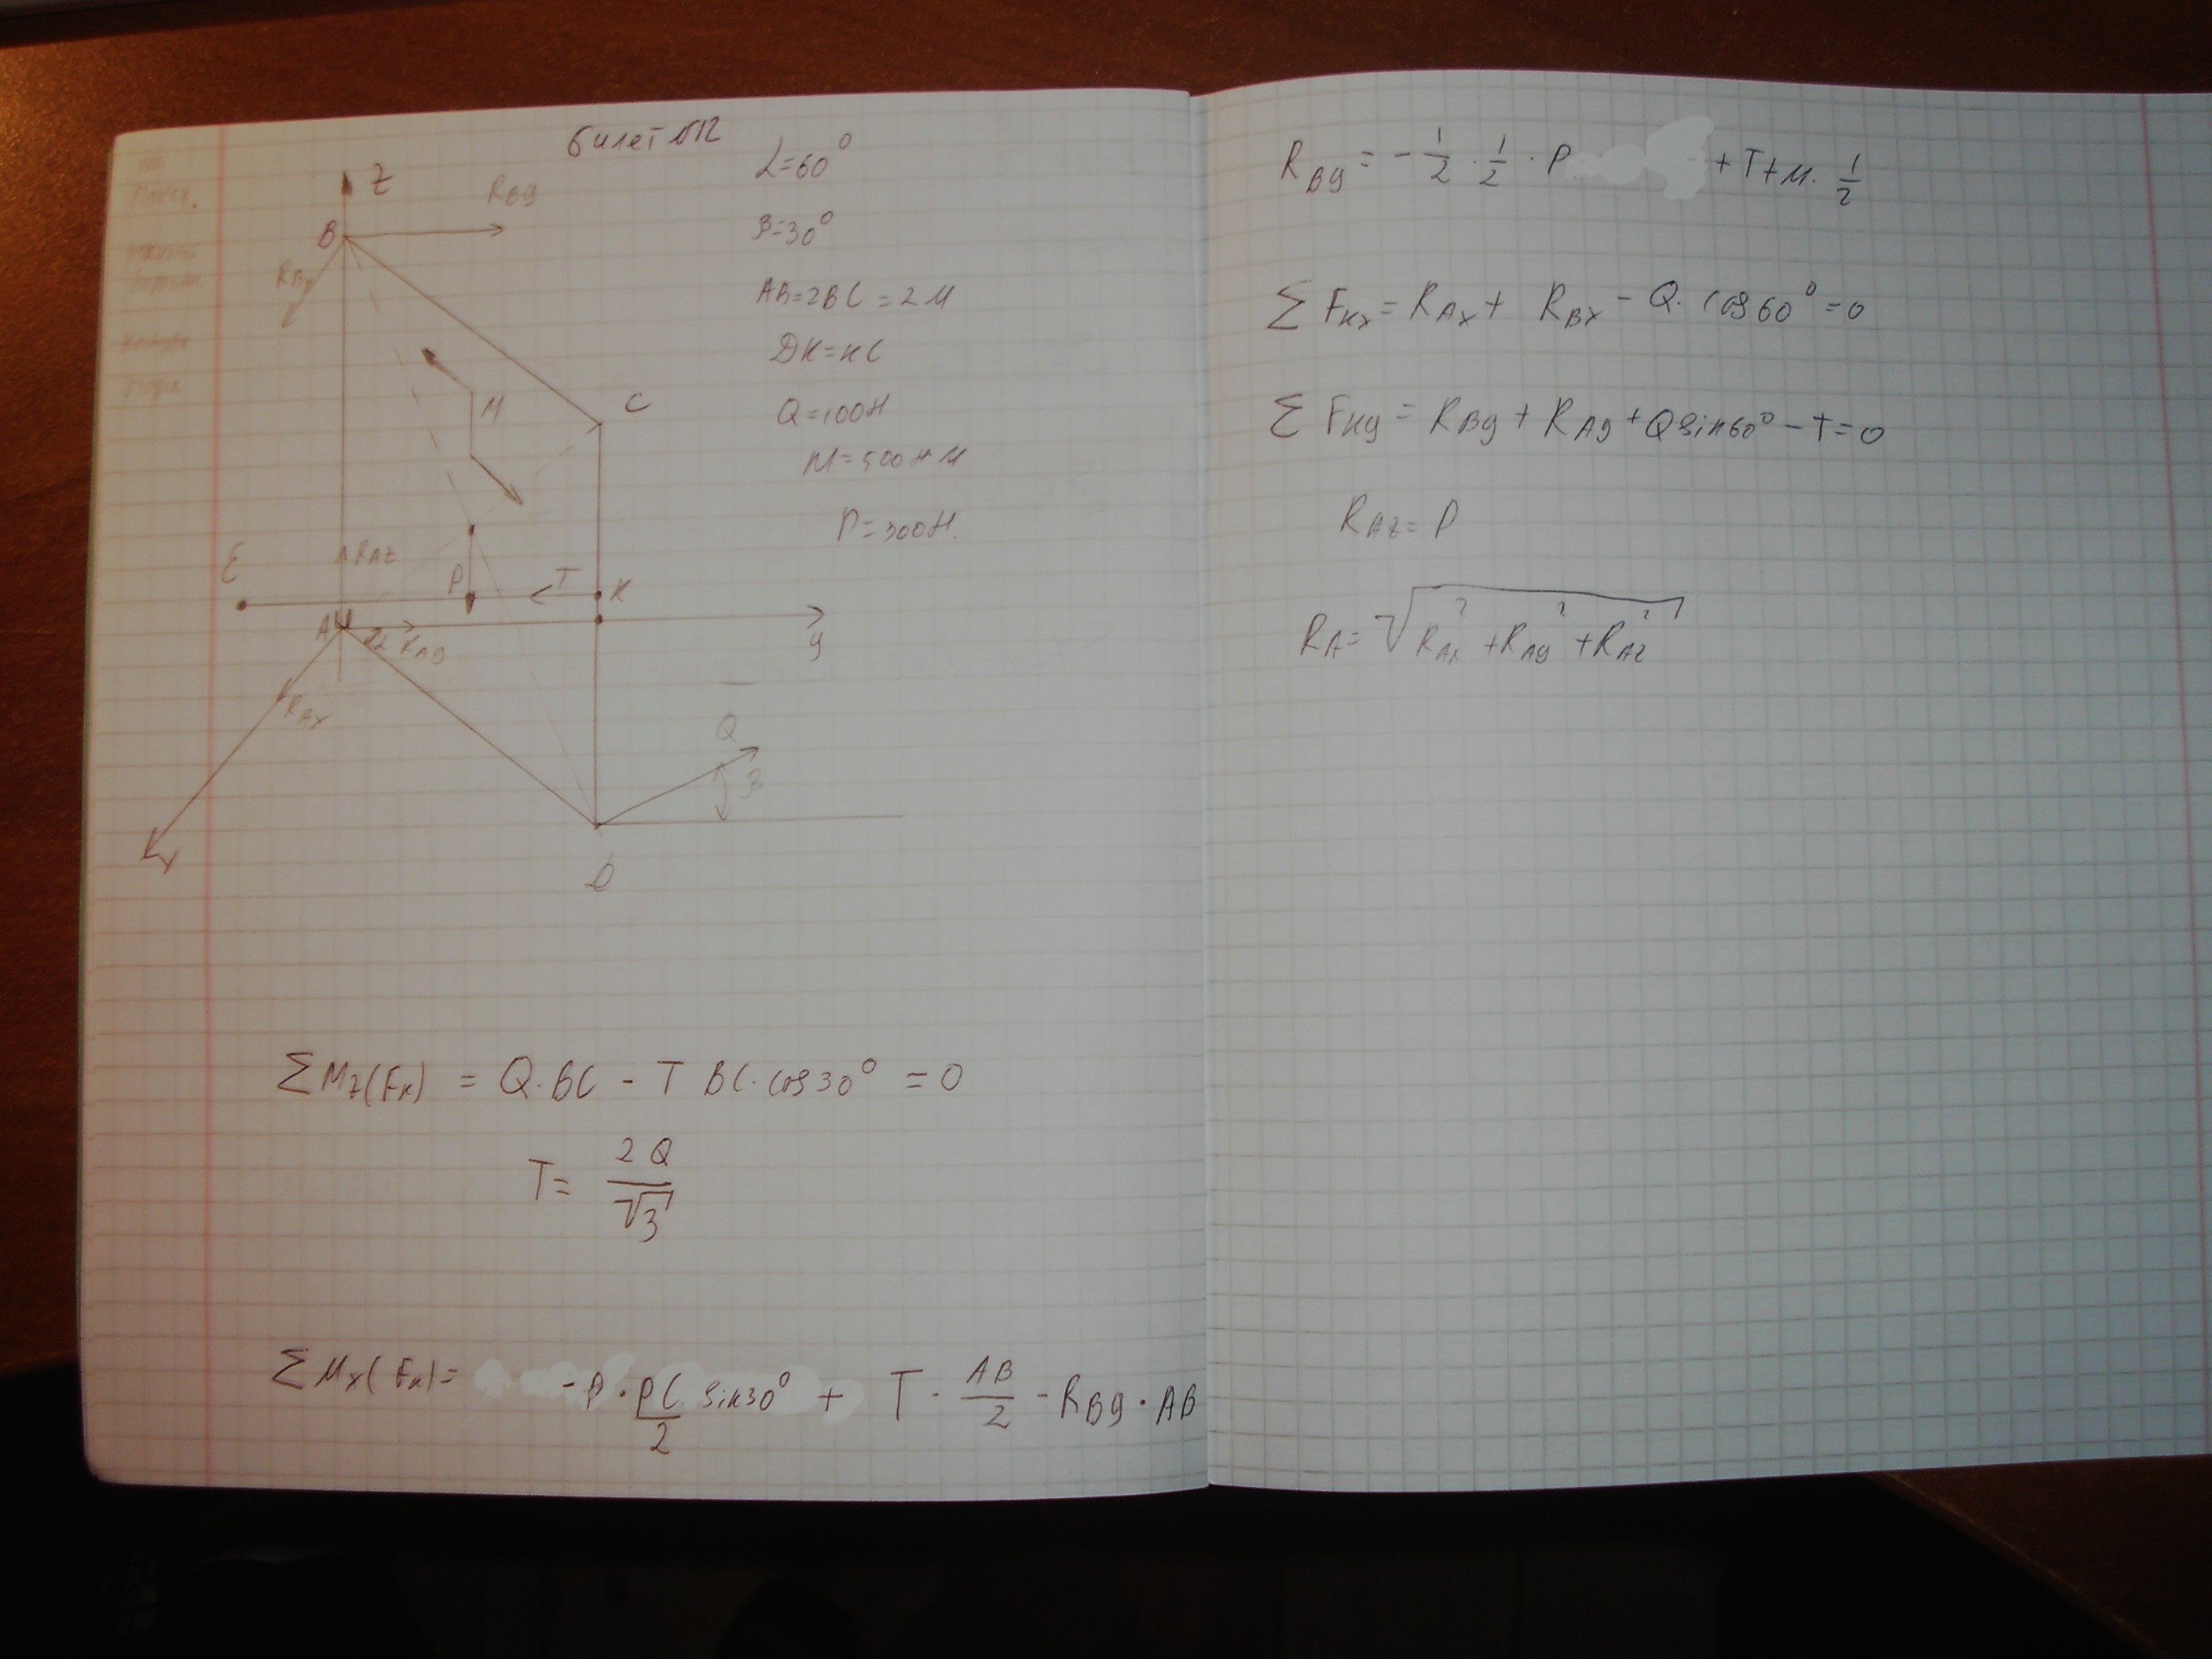 билет №12
L=60°
β=30°
AB=2BC=2м
DK=KC
Q=100Н
M=500Н м
P=300Н.
Z
B
RBy
RBx
M
C
E
RAZ
P
T
K
A
α
RAy
y
RAx
Q
β
x
D
ΣMz(Fк) = Q·BC - T BC·cos30° = 0
T= 2Q/√3
ΣMx(Fк)= -P·PC/2 sin30° + T·AB/2 - RBy·AB
RBy = -1/2·1/2·P + T+M·1/2
ΣFкx = RAx + RBx - Q·cos60°=0
ΣFкy = RBy + RAy + Qsin60° - T=0
RAz = P
RA= √RAx²+RAy²+RAz²